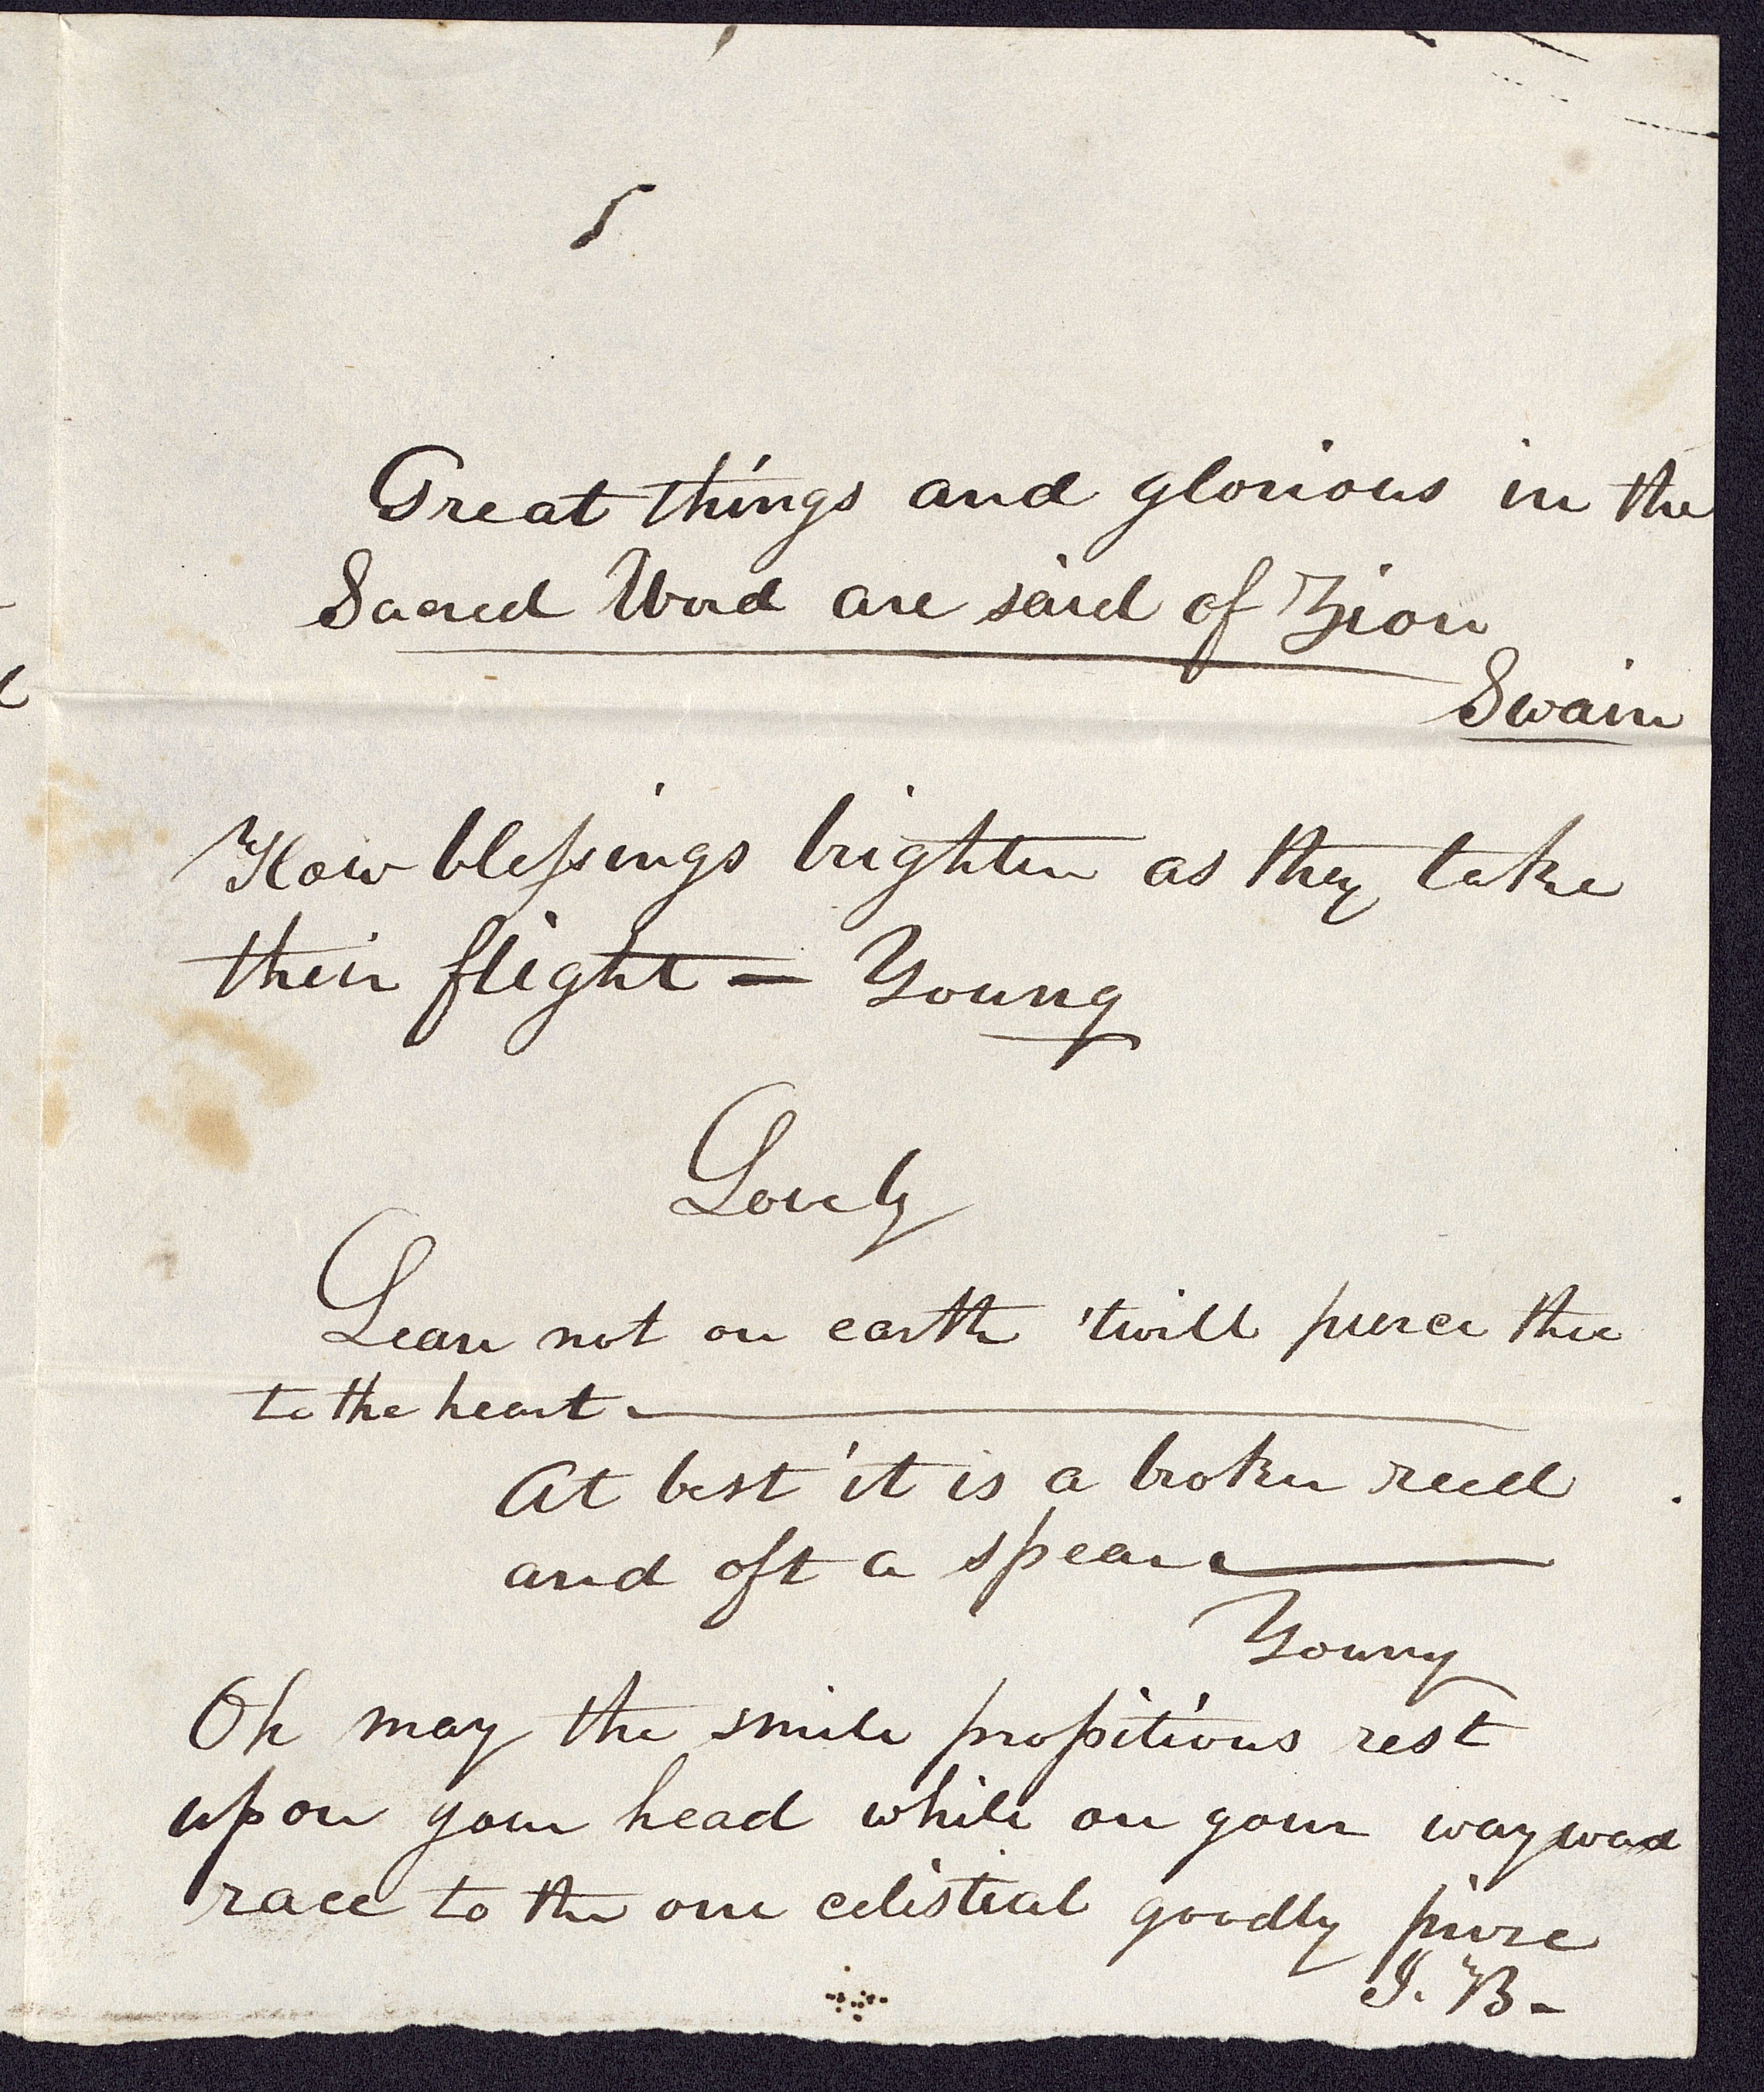 Great things and glorious in the
Sacred Word are said of Zion
Swain
How blessings brighten as they take
their flight — Young
Lovely
Lean not on earth 'twill pierce thee
to the heart. —
At best it is a broken reed
and oft a spear. —
Young
Oh may the smile propitious rest
upon your head while on your wayward
race to the one celistial goodly
J. B.-